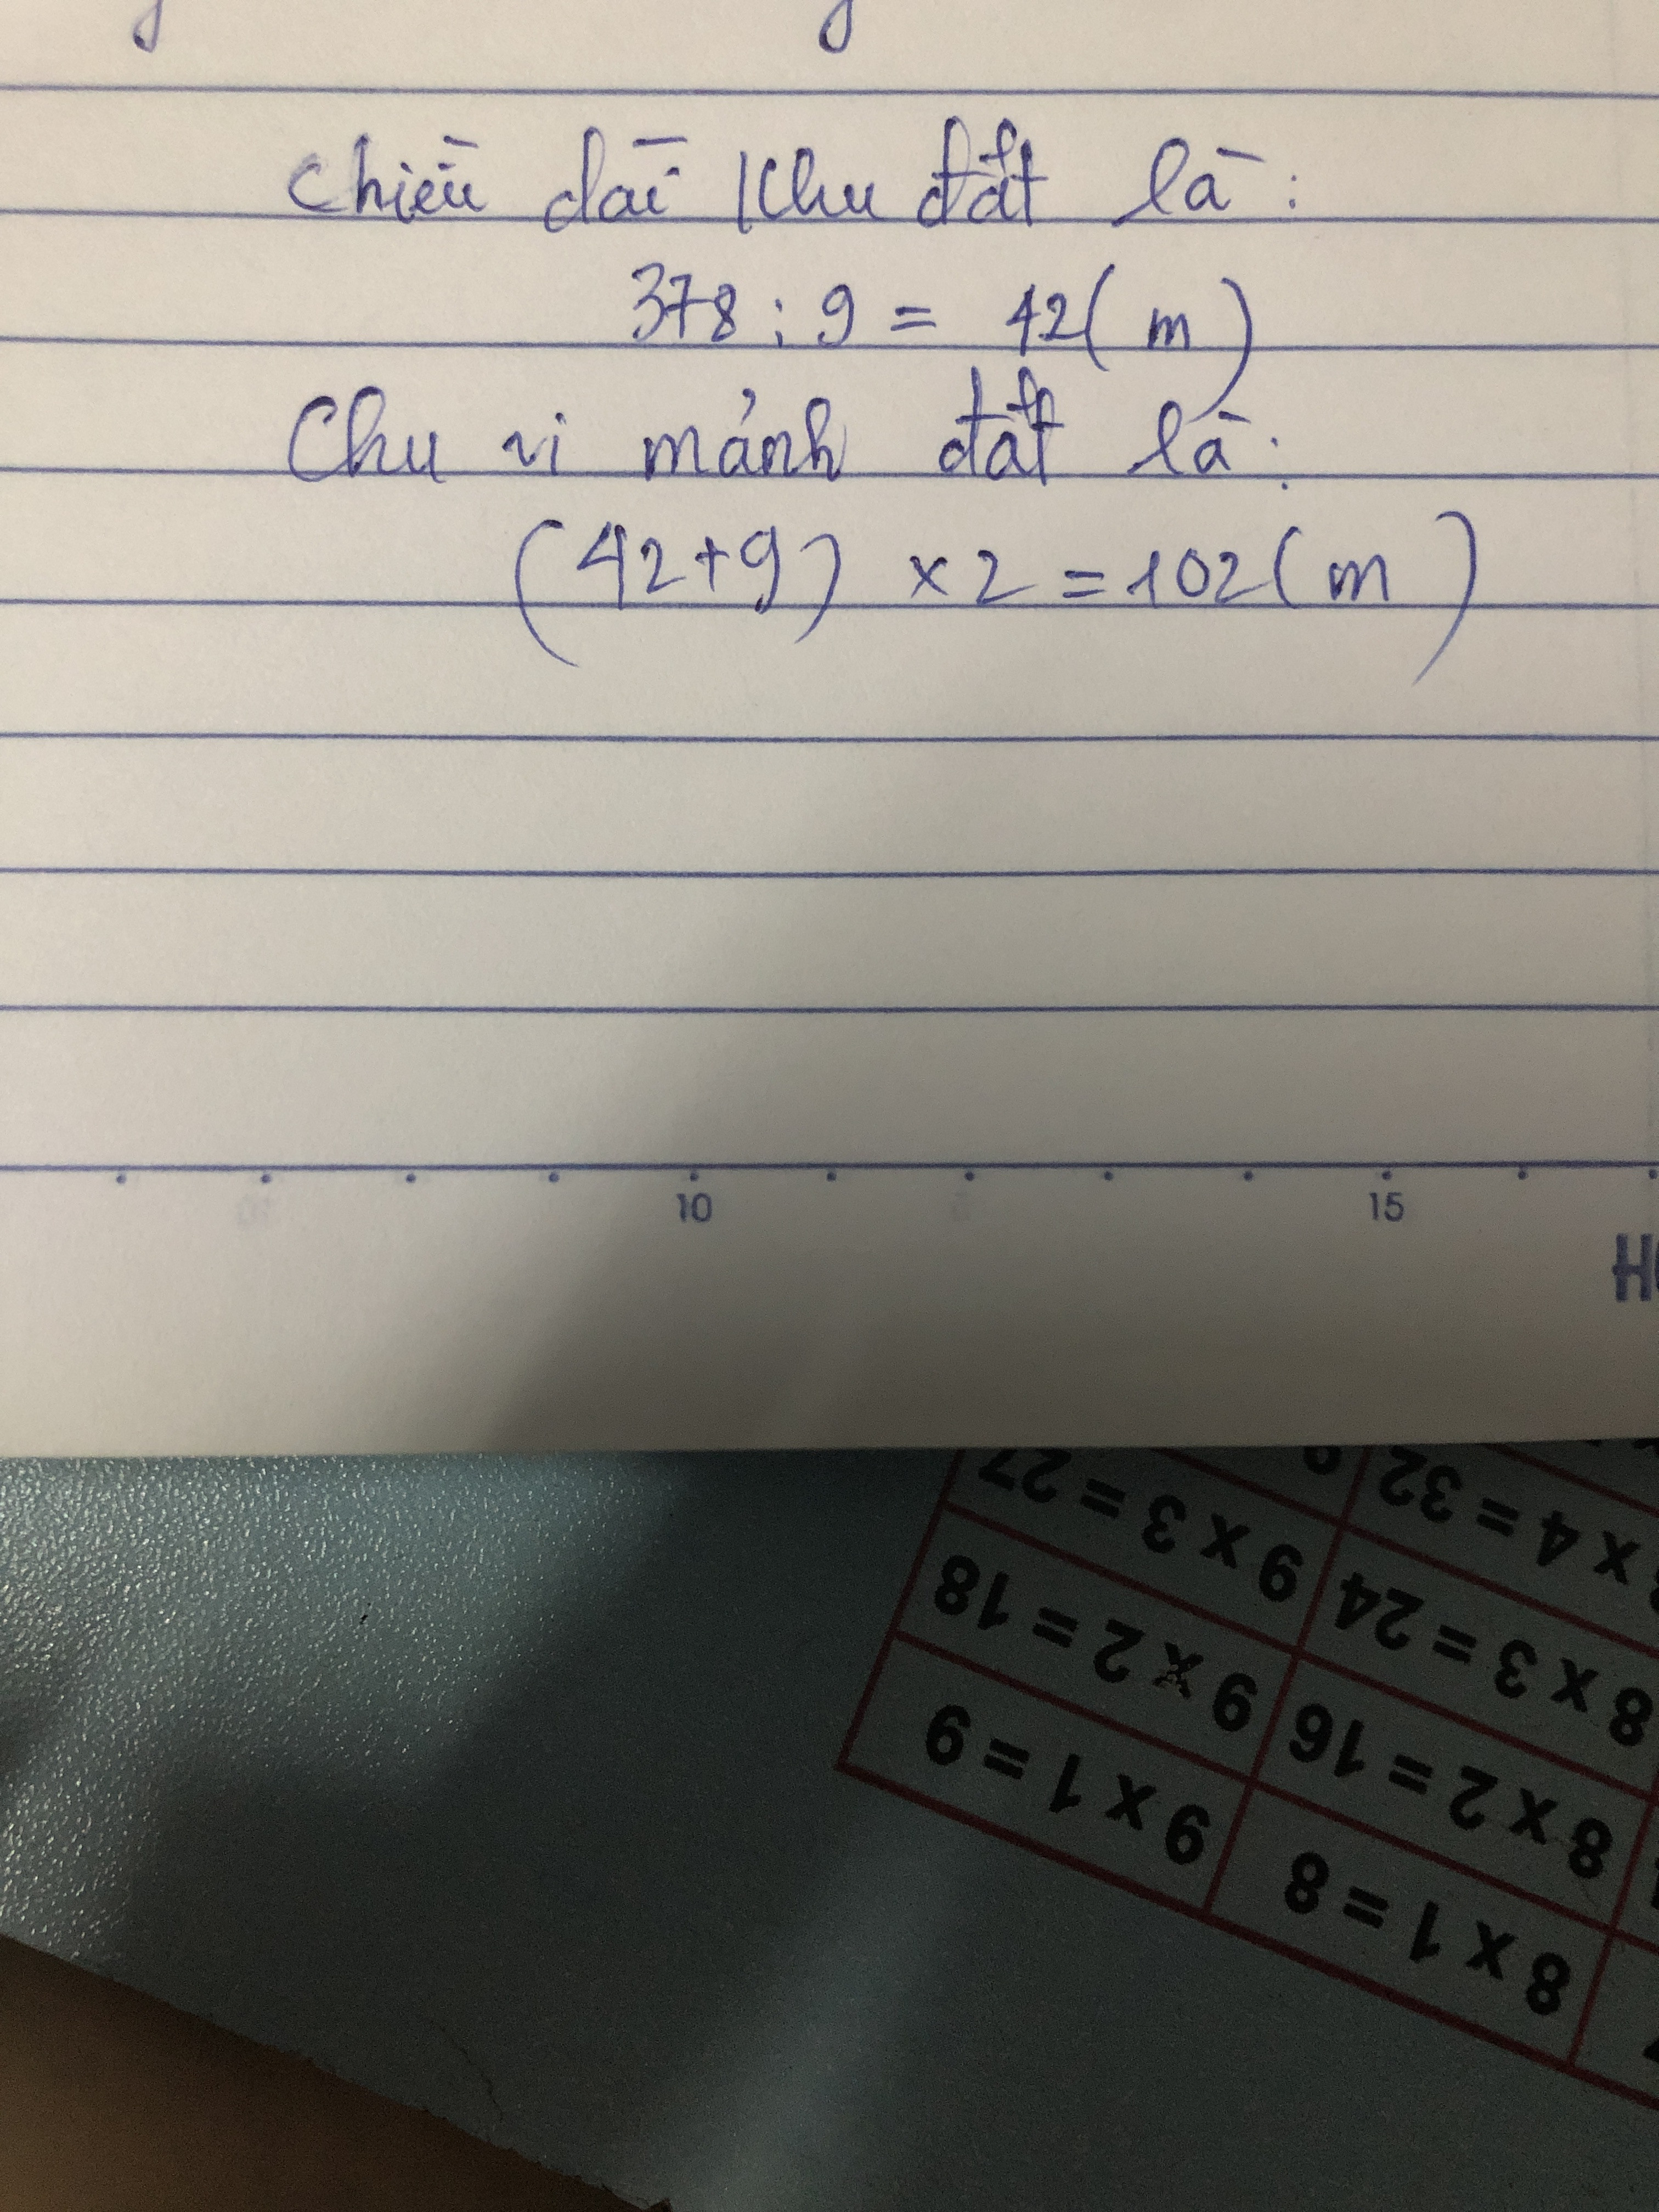 Chiều dài khu đất là:
378 : 9 = 42 (m)
Chu vi mảnh đất là:
(42+9) x 2 = 102 (m)
10 15
9 x 3 = 27
x 4 = 32
9 x 2 = 18
8 x 3 = 24
9 x 1 = 9
8 x 2 = 16
8 x 1 = 8